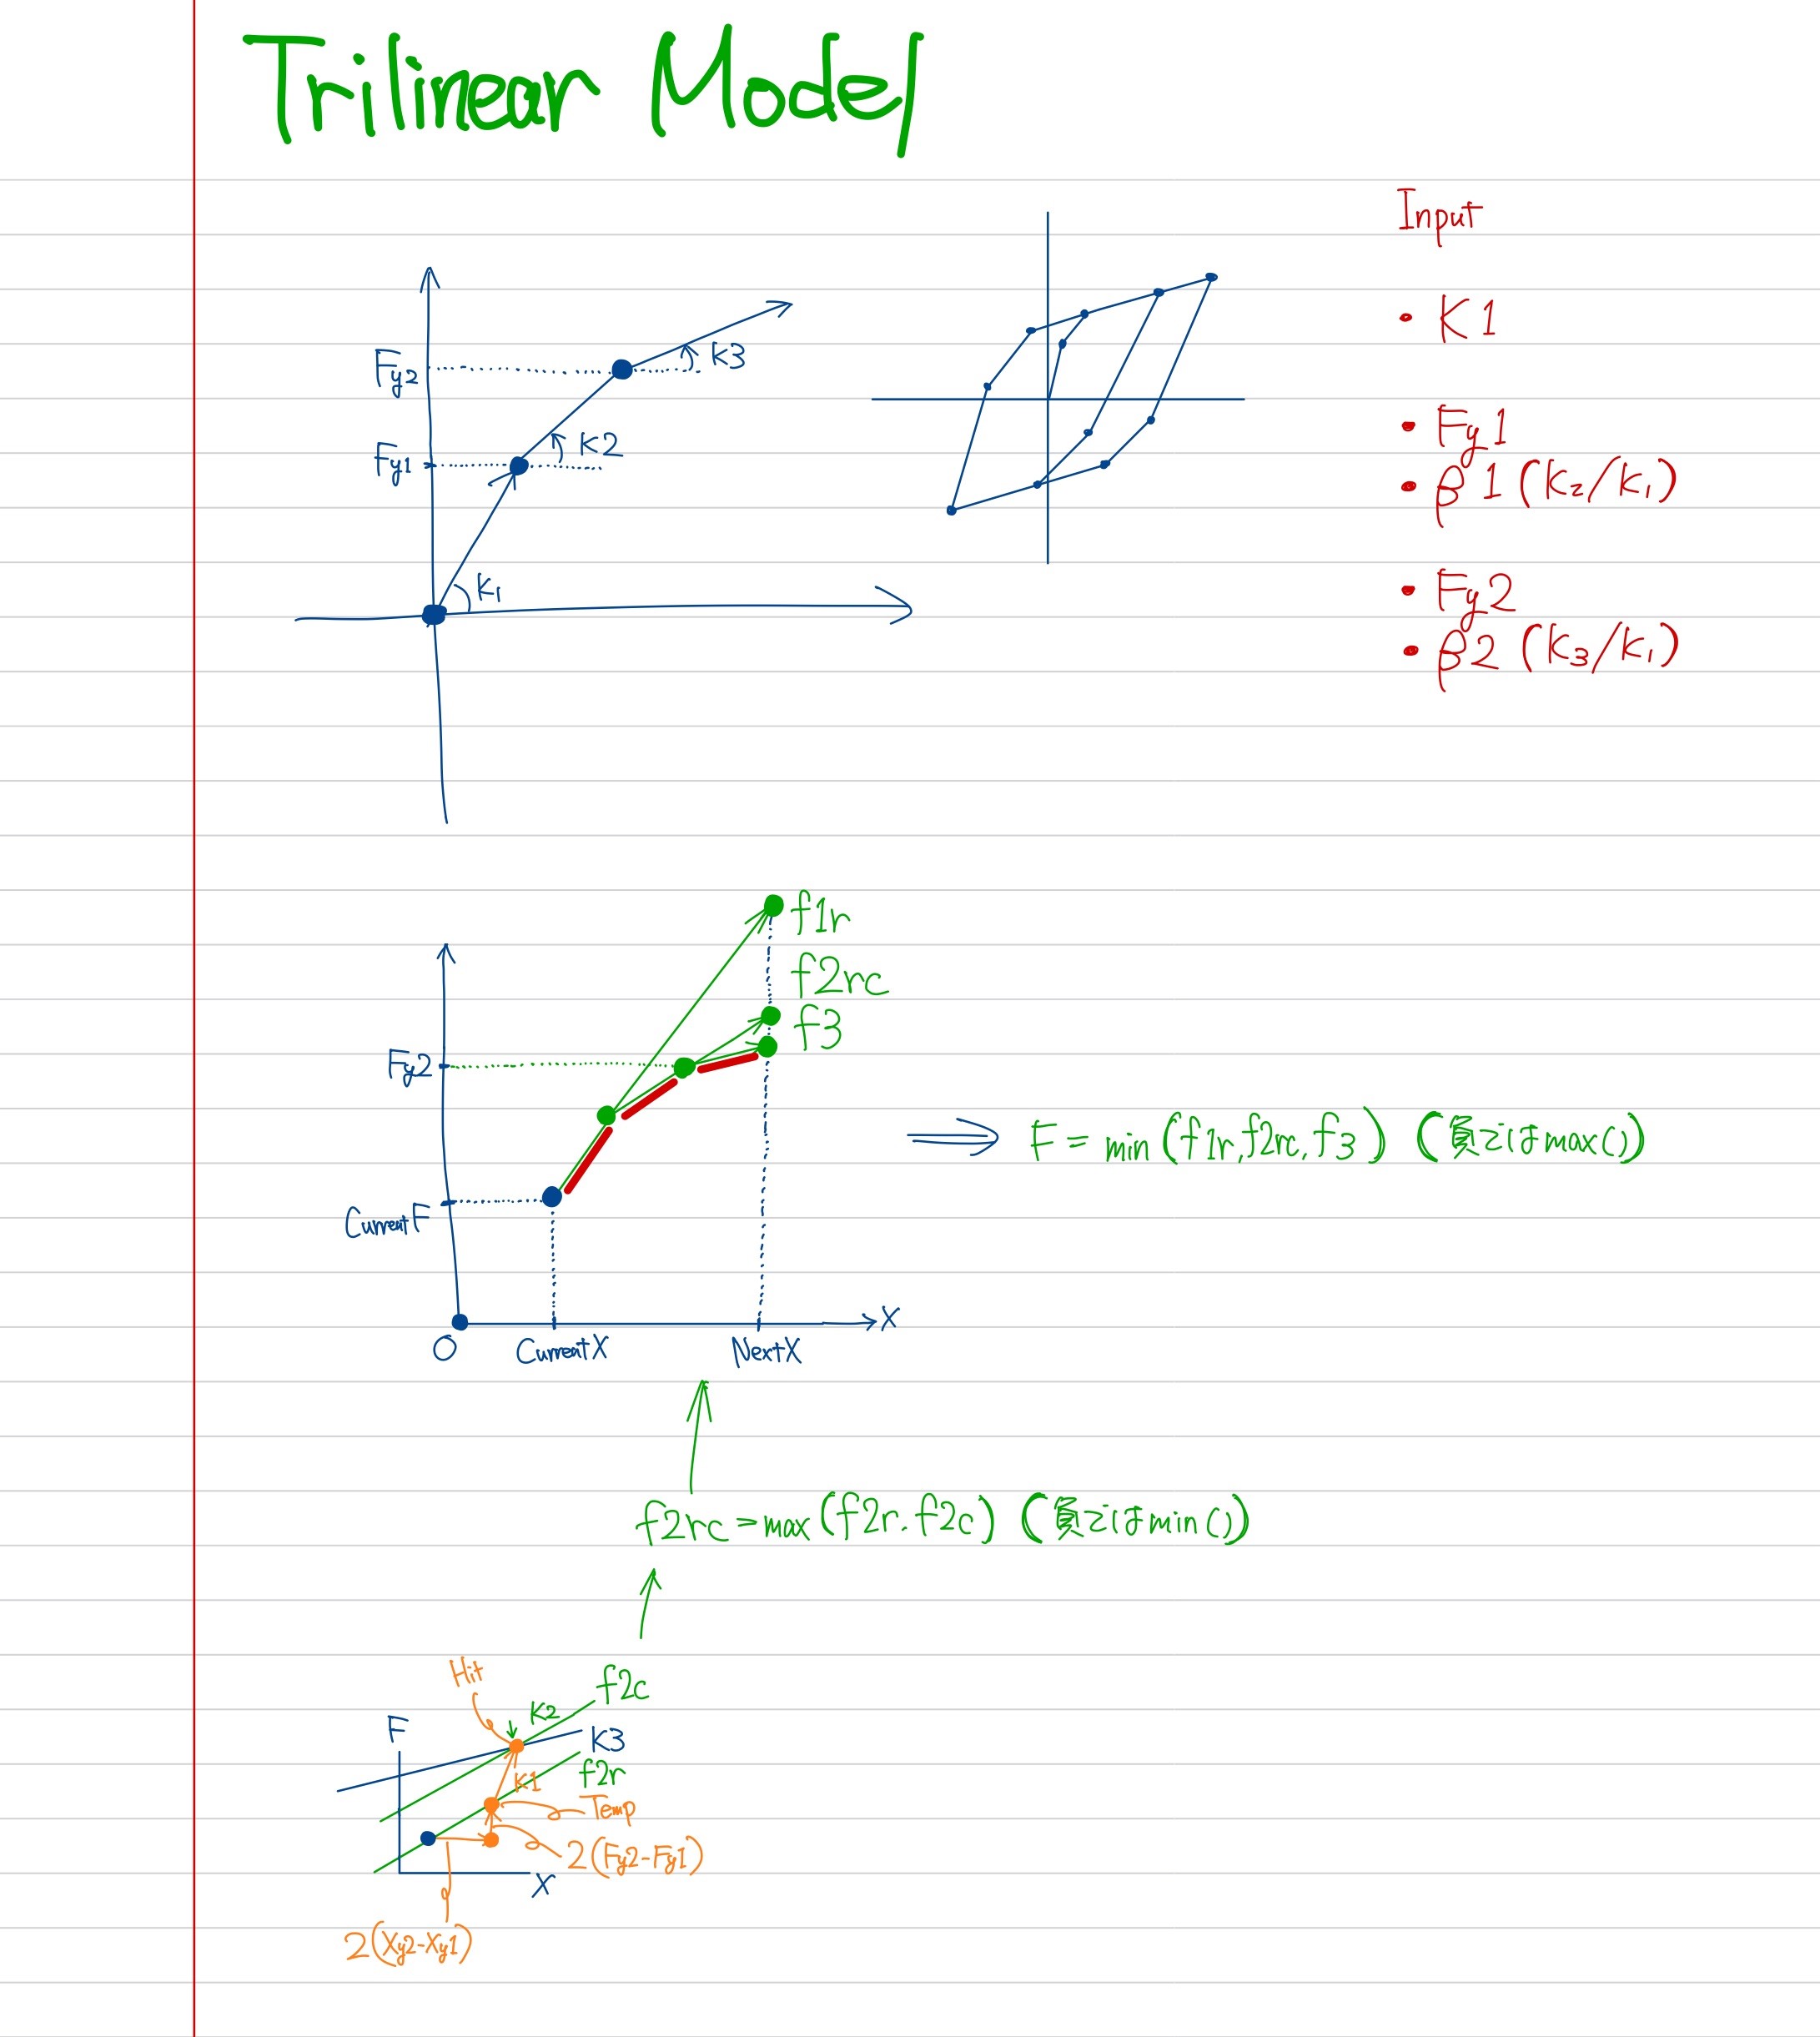 Trilinear Model
Fy2
K3
Fy1
K2
K1
Input
• K1
• Fy1
• β1 (K2/K1)
• Fy2
• β2 (K3/K1)
f1r
f2rc
f3
Fy2
Current F
O
Current X
Next X
X
⇒ F = min (f1r, f2rc, f3) (負ではmax())
f2rc = max (f2r, f2c) (負ではmin())
Hit
f2c
K2
F
K3
f2r
K1
Temp
2(Fy2-Fy1)
X
2(Xy2-Xy1)